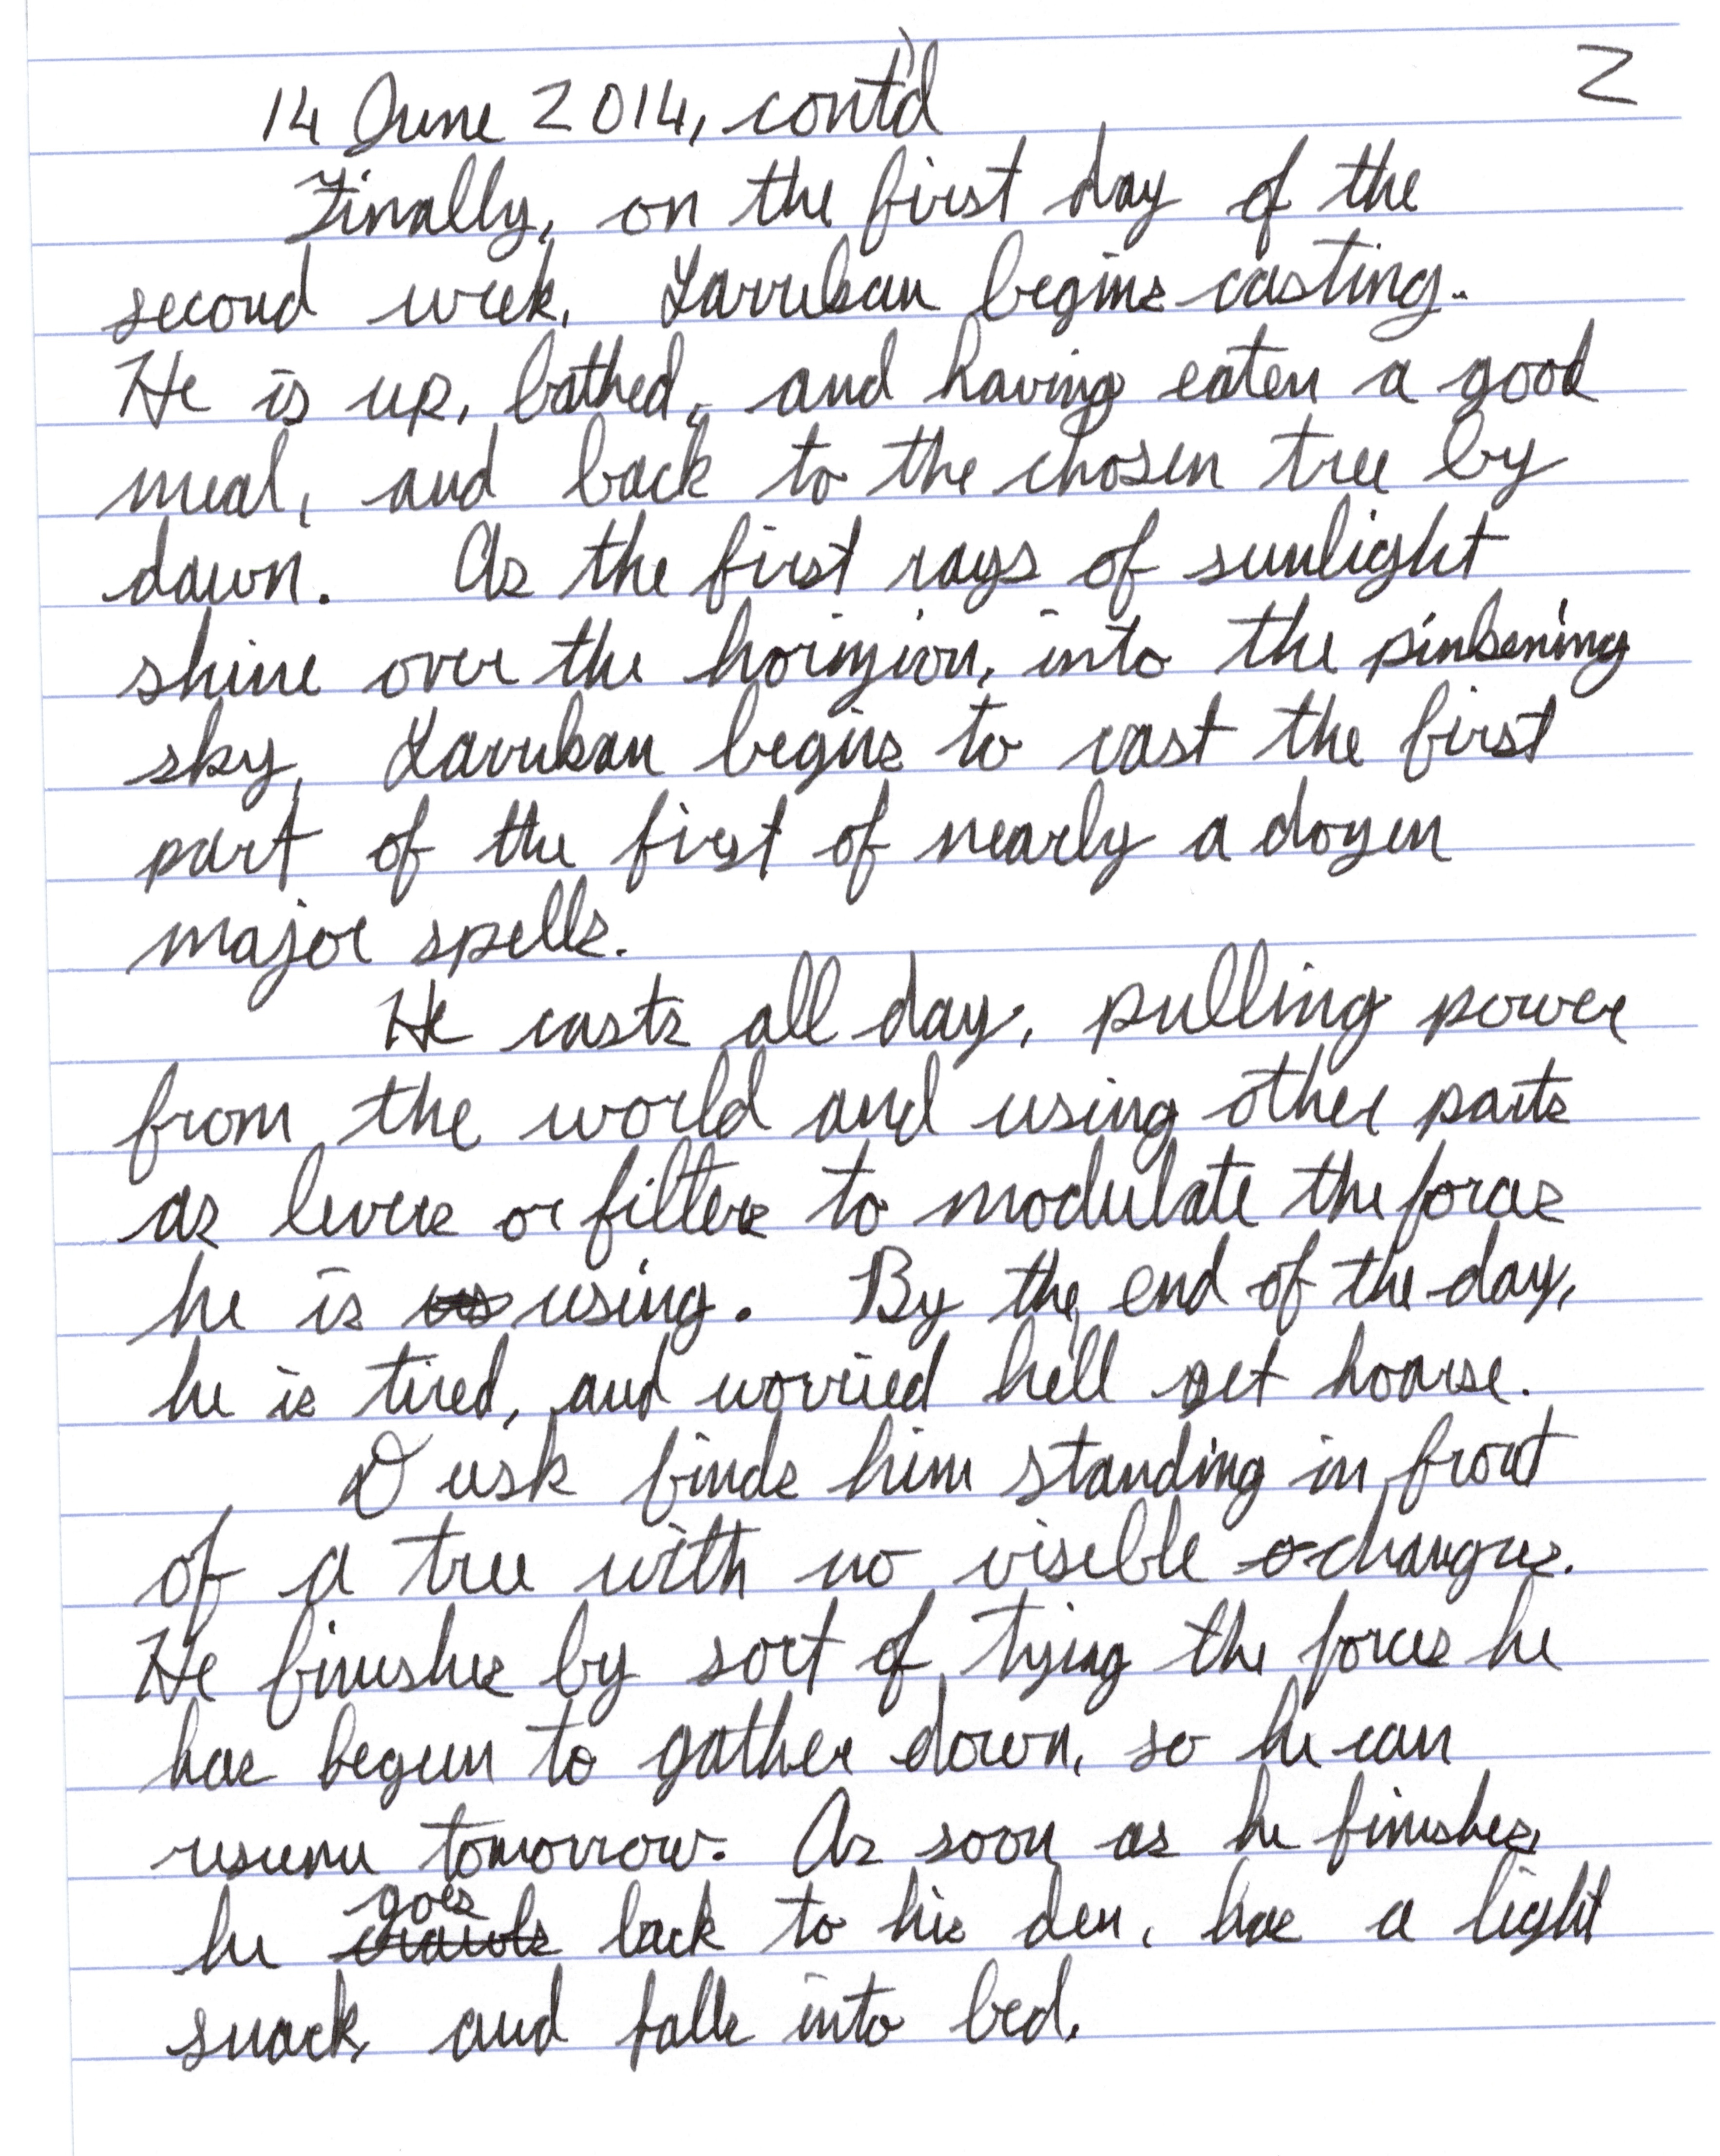 14 June 2014, cont'd
2
Finally, on the first day of the
second week, Lavukan begins casting.
He is up, bathed, and having eaten a good
meal, and back to the chosen tree by
dawn. As the first rays of sunlight
shine over the horizion, into the pinkening
sky, Lavukan begins to cast the first
part of the first of nearly a dozen
major spells.
He casts all day, pulling power
from the world and using other parts
as levers or filters to modulate the forces
he is using. By the end of the day,
he is tired, and worried he'll get hoarse.
Dusk finds him standing in front
of a tree with no visible changes.
He finishes by sort of tying the forces he
has begun to gather down, so he can
resume tomorrow. As soon as he finishes,
he goes back to his den, has a light
snack, and falls into bed.